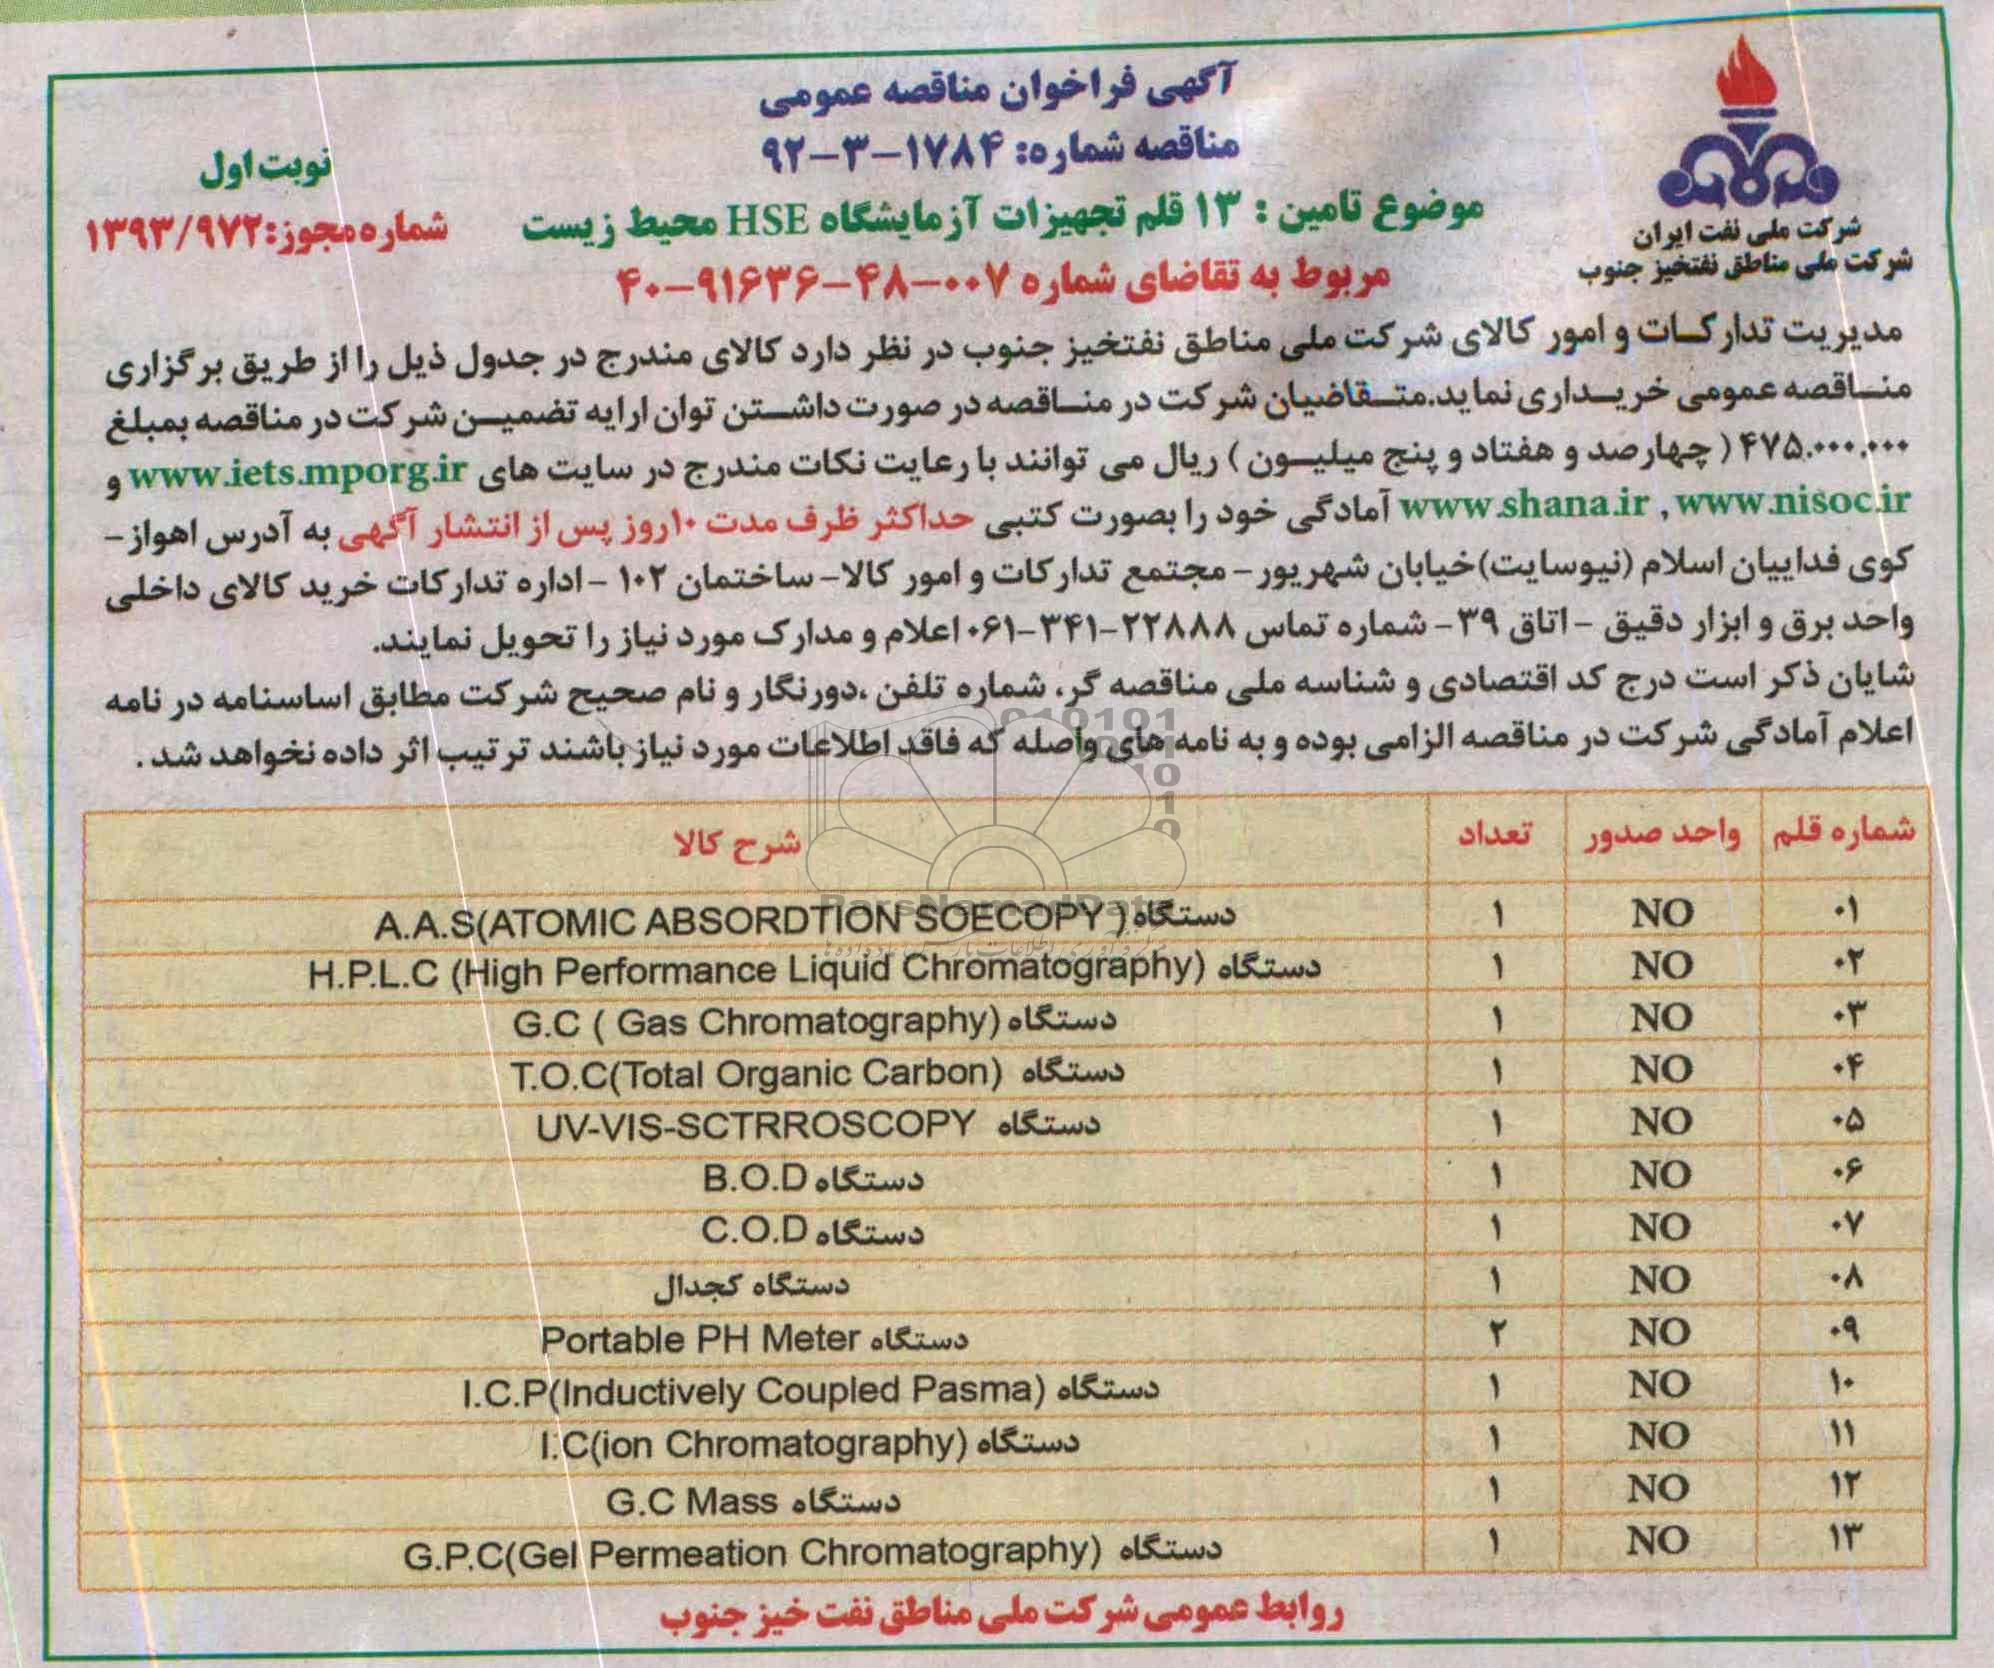 آگهی فراخوان مناقصه عمومی
مناقصه شماره: ۱۷۸۴-۳-۹۲
نوبت اول
موضوع تامین : ۱۳ قلم تجهیزات آزمایشگاه HSE محیط زیست
شماره مجوز:۱۳۹۳/۹۷۲
مربوط به تقاضای شماره ۰۰۷-۴۸-۹۱۶۳۶-۴۰
شرکت ملی نفت ایران
شرکت ملی مناطق نفتخیز جنوب
مدیریت تدارکات و امور کالای شرکت ملی مناطق نفتخیز جنوب در نظر دارد کالای مندرج در جدول ذیل را از طریق برگزاری
مناقصه عمومی خریداری نماید.متقاضیان شرکت در مناقصه در صورت داشتن توان ارایه تضمین شرکت در مناقصه بمبلغ
۴۷۵.۰۰۰.۰۰۰ ( چهارصد و هفتاد و پنج میلیون ) ریال می توانند با رعایت نکات مندرج در سایت های www.iets.mporg.ir و
www.shana.ir , www.nisoc.ir آمادگی خود را بصورت کتبی حداکثر ظرف مدت ۱۰روز پس از انتشار آگهی به آدرس اهواز-
کوی فداییان اسلام (نیوسایت)خیابان شهریور- مجتمع تدارکات و امور کالا- ساختمان ۱۰۲ -اداره تدارکات خرید کالای داخلی
واحد برق و ابزار دقیق -اتاق ۳۹- شماره تماس ۲۲۸۸۸-۳۴۱-۰۶۱ اعلام و مدارک مورد نیاز را تحویل نمایند.
شایان ذکر است درج کد اقتصادی و شناسه ملی مناقصه گر، شماره تلفن ،دورنگار و نام صحیح شرکت مطابق اساسنامه در نامه
اعلام آمادگی شرکت در مناقصه الزامی بوده و به نامه های واصله که فاقد اطلاعات مورد نیاز باشند ترتیب اثر داده نخواهد شد .
شماره قلم واحد صدور تعداد شرح کالا
۰۱ NO ۱ دستگاه A.A.S(ATOMIC ABSORDTION SOECOPY )
۰۲ NO ۱ دستگاه H.P.L.C (High Performance Liquid Chromatography)
۰۳ NO ۱ دستگاه G.C ( Gas Chromatography)
۰۴ NO ۱ دستگاه T.O.C(Total Organic Carbon)
۰۵ NO ۱ دستگاه UV-VIS-SCTRROSCOPY
۰۶ NO ۱ دستگاه B.O.D
۰۷ NO ۱ دستگاه C.O.D
۰۸ NO ۱ دستگاه کجدال
۰۹ NO ۲ دستگاه Portable PH Meter
۱۰ NO ۱ دستگاه I.C.P(Inductively Coupled Pasma)
۱۱ NO ۱ دستگاه I.C(ion Chromatography)
۱۲ NO ۱ دستگاه G.C Mass
۱۳ NO ۱ دستگاه G.P.C(Gel Permeation Chromatography)
روابط عمومی شرکت ملی مناطق نفت خیز جنوب